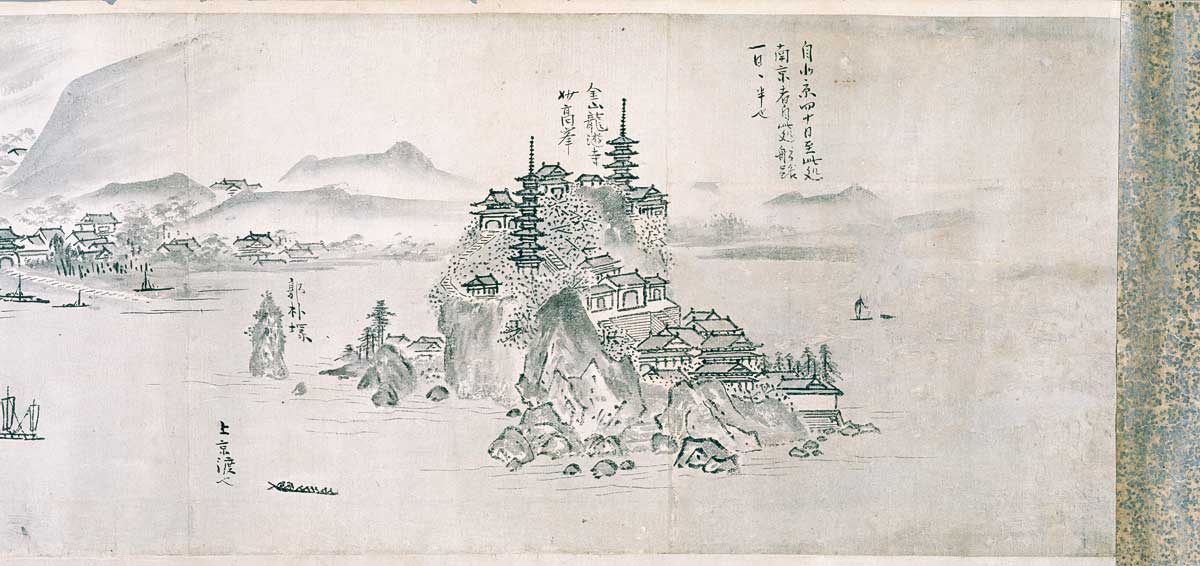 自北京四十日至此処
南京者自此処船路
一日、半也
金山龍游寺
妙高峯
郭朴塚
上京渡也